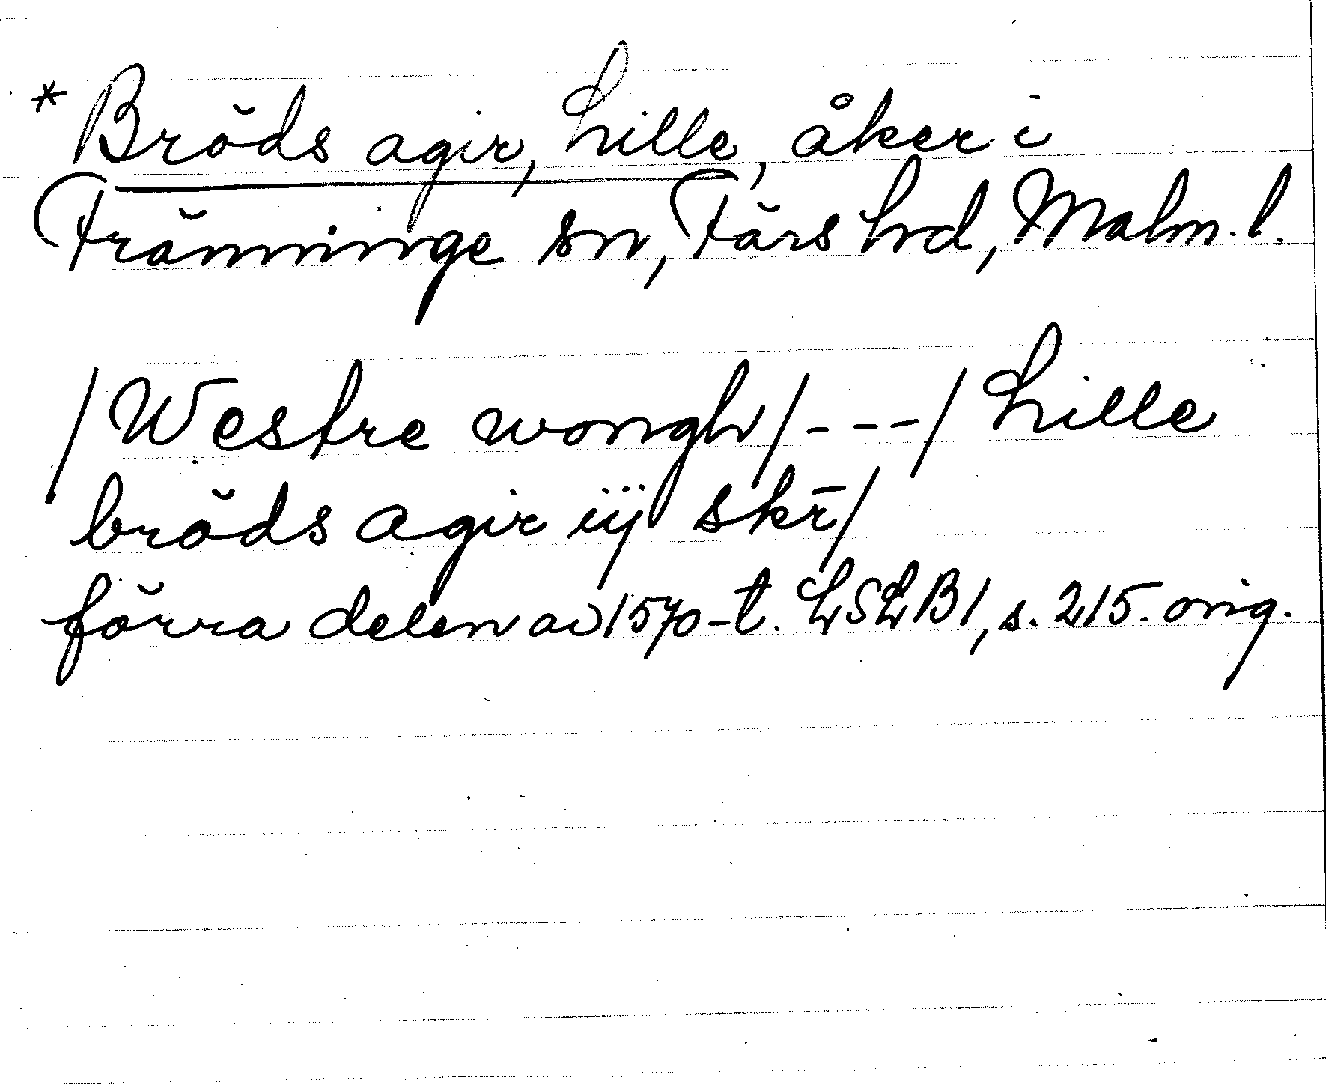 * Bröds agir, Lille, åker i
Tränninge sn, Färs hd, Malm. l.
/Westre wongh/---/Lille
bröds agir iij skr̄/
förra delen av 1570-t. LSLB1, s. 215. orig.